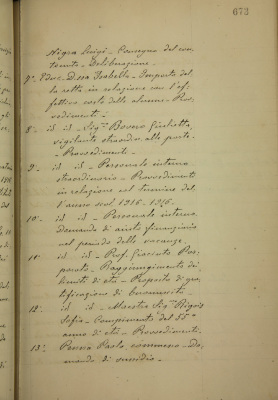 673
Nigra Luigi - Consegna del con-
tenuto - Deliberazione -
7° Educ. Duca Isabella - Importo del
la retta in relazione con l'ef-
fettivo costo delle alunne - Prov-
vedimenti -
8° - id id - Sig.ra Bovero Giulietta,
vigilante straordin. alla porta -
- Provvedimenti -
9° - id id - Personale interno
straordinario - Provvedimenti
in relazione col termine del-
l'anno scol 1915-1916 -
10° - id id - Personale interno
domanda di aiuto finanziario
nel periodo delle vacanze -
11° id id - Prof. Giacinto
- Raggiungimento di
limiti di età - Proposta di gra-
tificazione di buonuscita -
12° id id - Maestra Sig.ra
Sofia - Compimento del 55°
anno di età - Provvedimenti -
13° Paola commessa - Do-
manda di sussidio -